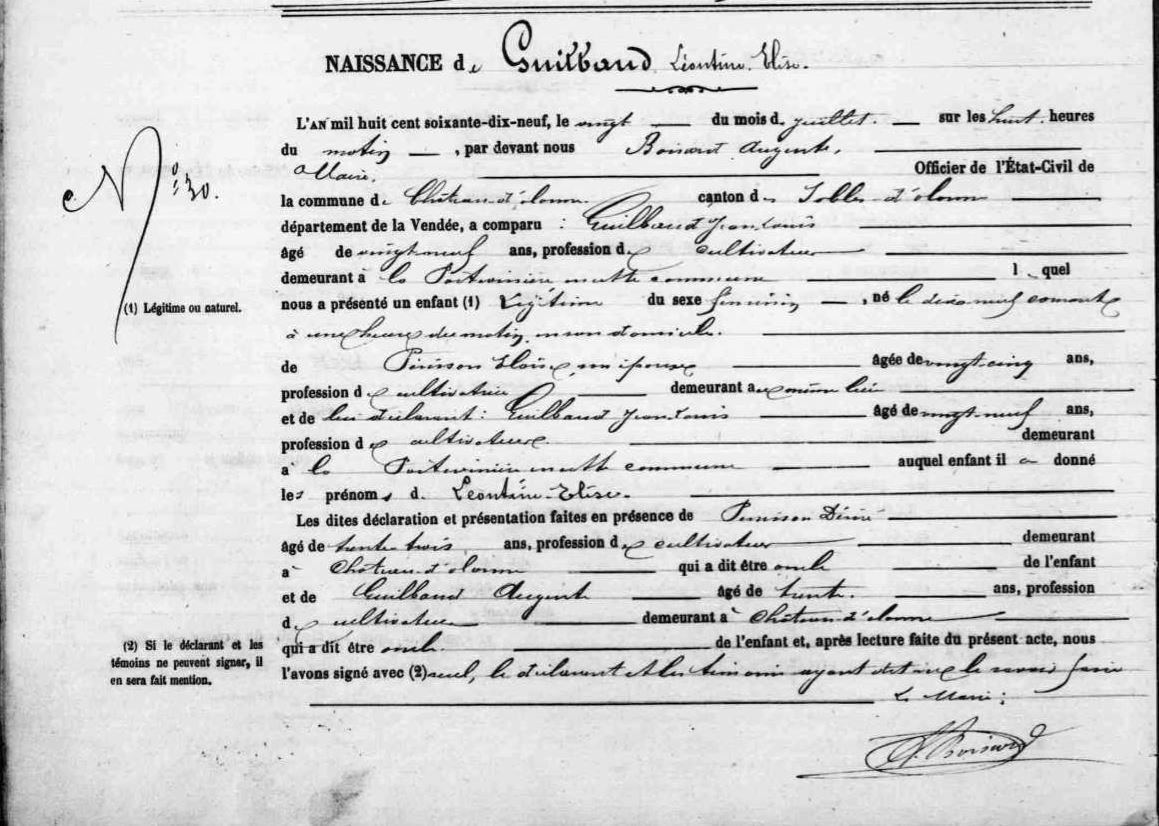 NAISSANCE de Guilbaud Léontine Elise.
L'AN mil huit cent soixante-dix-neuf, le vingt du mois de juillet. sur les huit heures
N° 30.
du matin, par devant nous Boisard Auguste,
Maire, Officier de l'État-Civil de
la commune de Château d'olonne canton des Sables d'olonne
département de la Vendée, a comparu : Guilbaud Jean Louis
âgé de vingt neuf ans, profession de cultivateur
demeurant à la en cette commune l quel
(1) Légitime ou naturel.
nous a présenté un enfant (1) Légitime du sexe féminin, né le dix neuf courant
à une heure du matin, en son domicile.
de Pinson Eloïse, son épouse âgée de vingt cinq ans,
profession de cultivatrice demeurant au même lieu
et de lui déclarant : Guilbaud Jean Louis âgé de vingt neuf ans,
profession de cultivateur demeurant
à la en cette commune auquel enfant il a donné
les prénoms de Léontine Elise.
Les dites déclaration et présentation faites en présence de
âgé de trente trois ans, profession de cultivateur demeurant
à Château d'olonne qui a dit être oncle de l'enfant
et de Guilbaud Auguste âgé de trente. ans, profession
de cultivateur demeurant à Château d'olonne
(2) Si le déclarant et les
témoins ne peuvent signer, il
en sera fait mention.
qui a dit être oncle de l'enfant et, après lecture faite du présent acte, nous
l'avons signé avec (2) seul, le déclarant et les témoins ayant déclaré ne le savoir faire
Le Maire :
A. Boisard